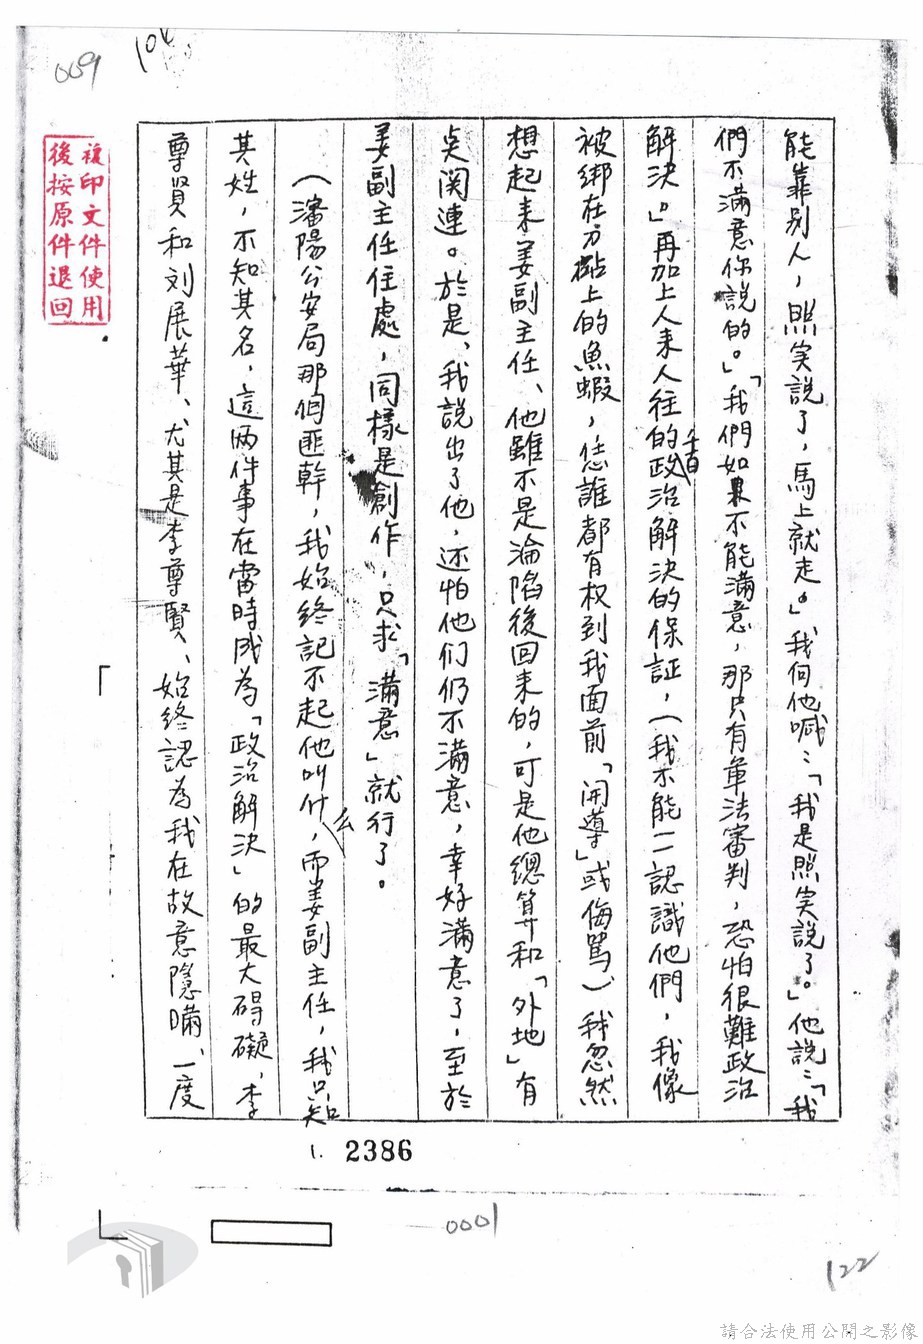 009
104
複印文件使用
後按原件退回
能靠別人，照实說了，馬上就走。」我向他喊：「我是照实說了。」他說：「我
們不滿意你說的。」「我們如果不能滿意，那只有軍法審判，恐怕很難政治
解決。」再加上人来人往的政治解決的保証，（我不能一一認識他們，我像
被綁在刀砧上的魚蝦，恁誰都有权到我面前「開導」或侮罵）我忽然
想起来姜副主任、他雖不是淪陷後回来的，可是他總算和「外地」有
点関連。於是、我說出了他，还怕他们仍不滿意，幸好滿意了，至於
姜副主任住處，同樣是創作，只求「滿意」就行了。
（瀋陽公安局那個匪幹，我始終記不起他叫什么，而姜副主任，我只知
其姓，不知其名，這両件事在當時成為「政治解決」的最大碍礙，李
尊賢和刘展華、尤其是李尊賢、始終認為我在故意隱瞞、一度
2386
0001
122
請合法使用公開之影像